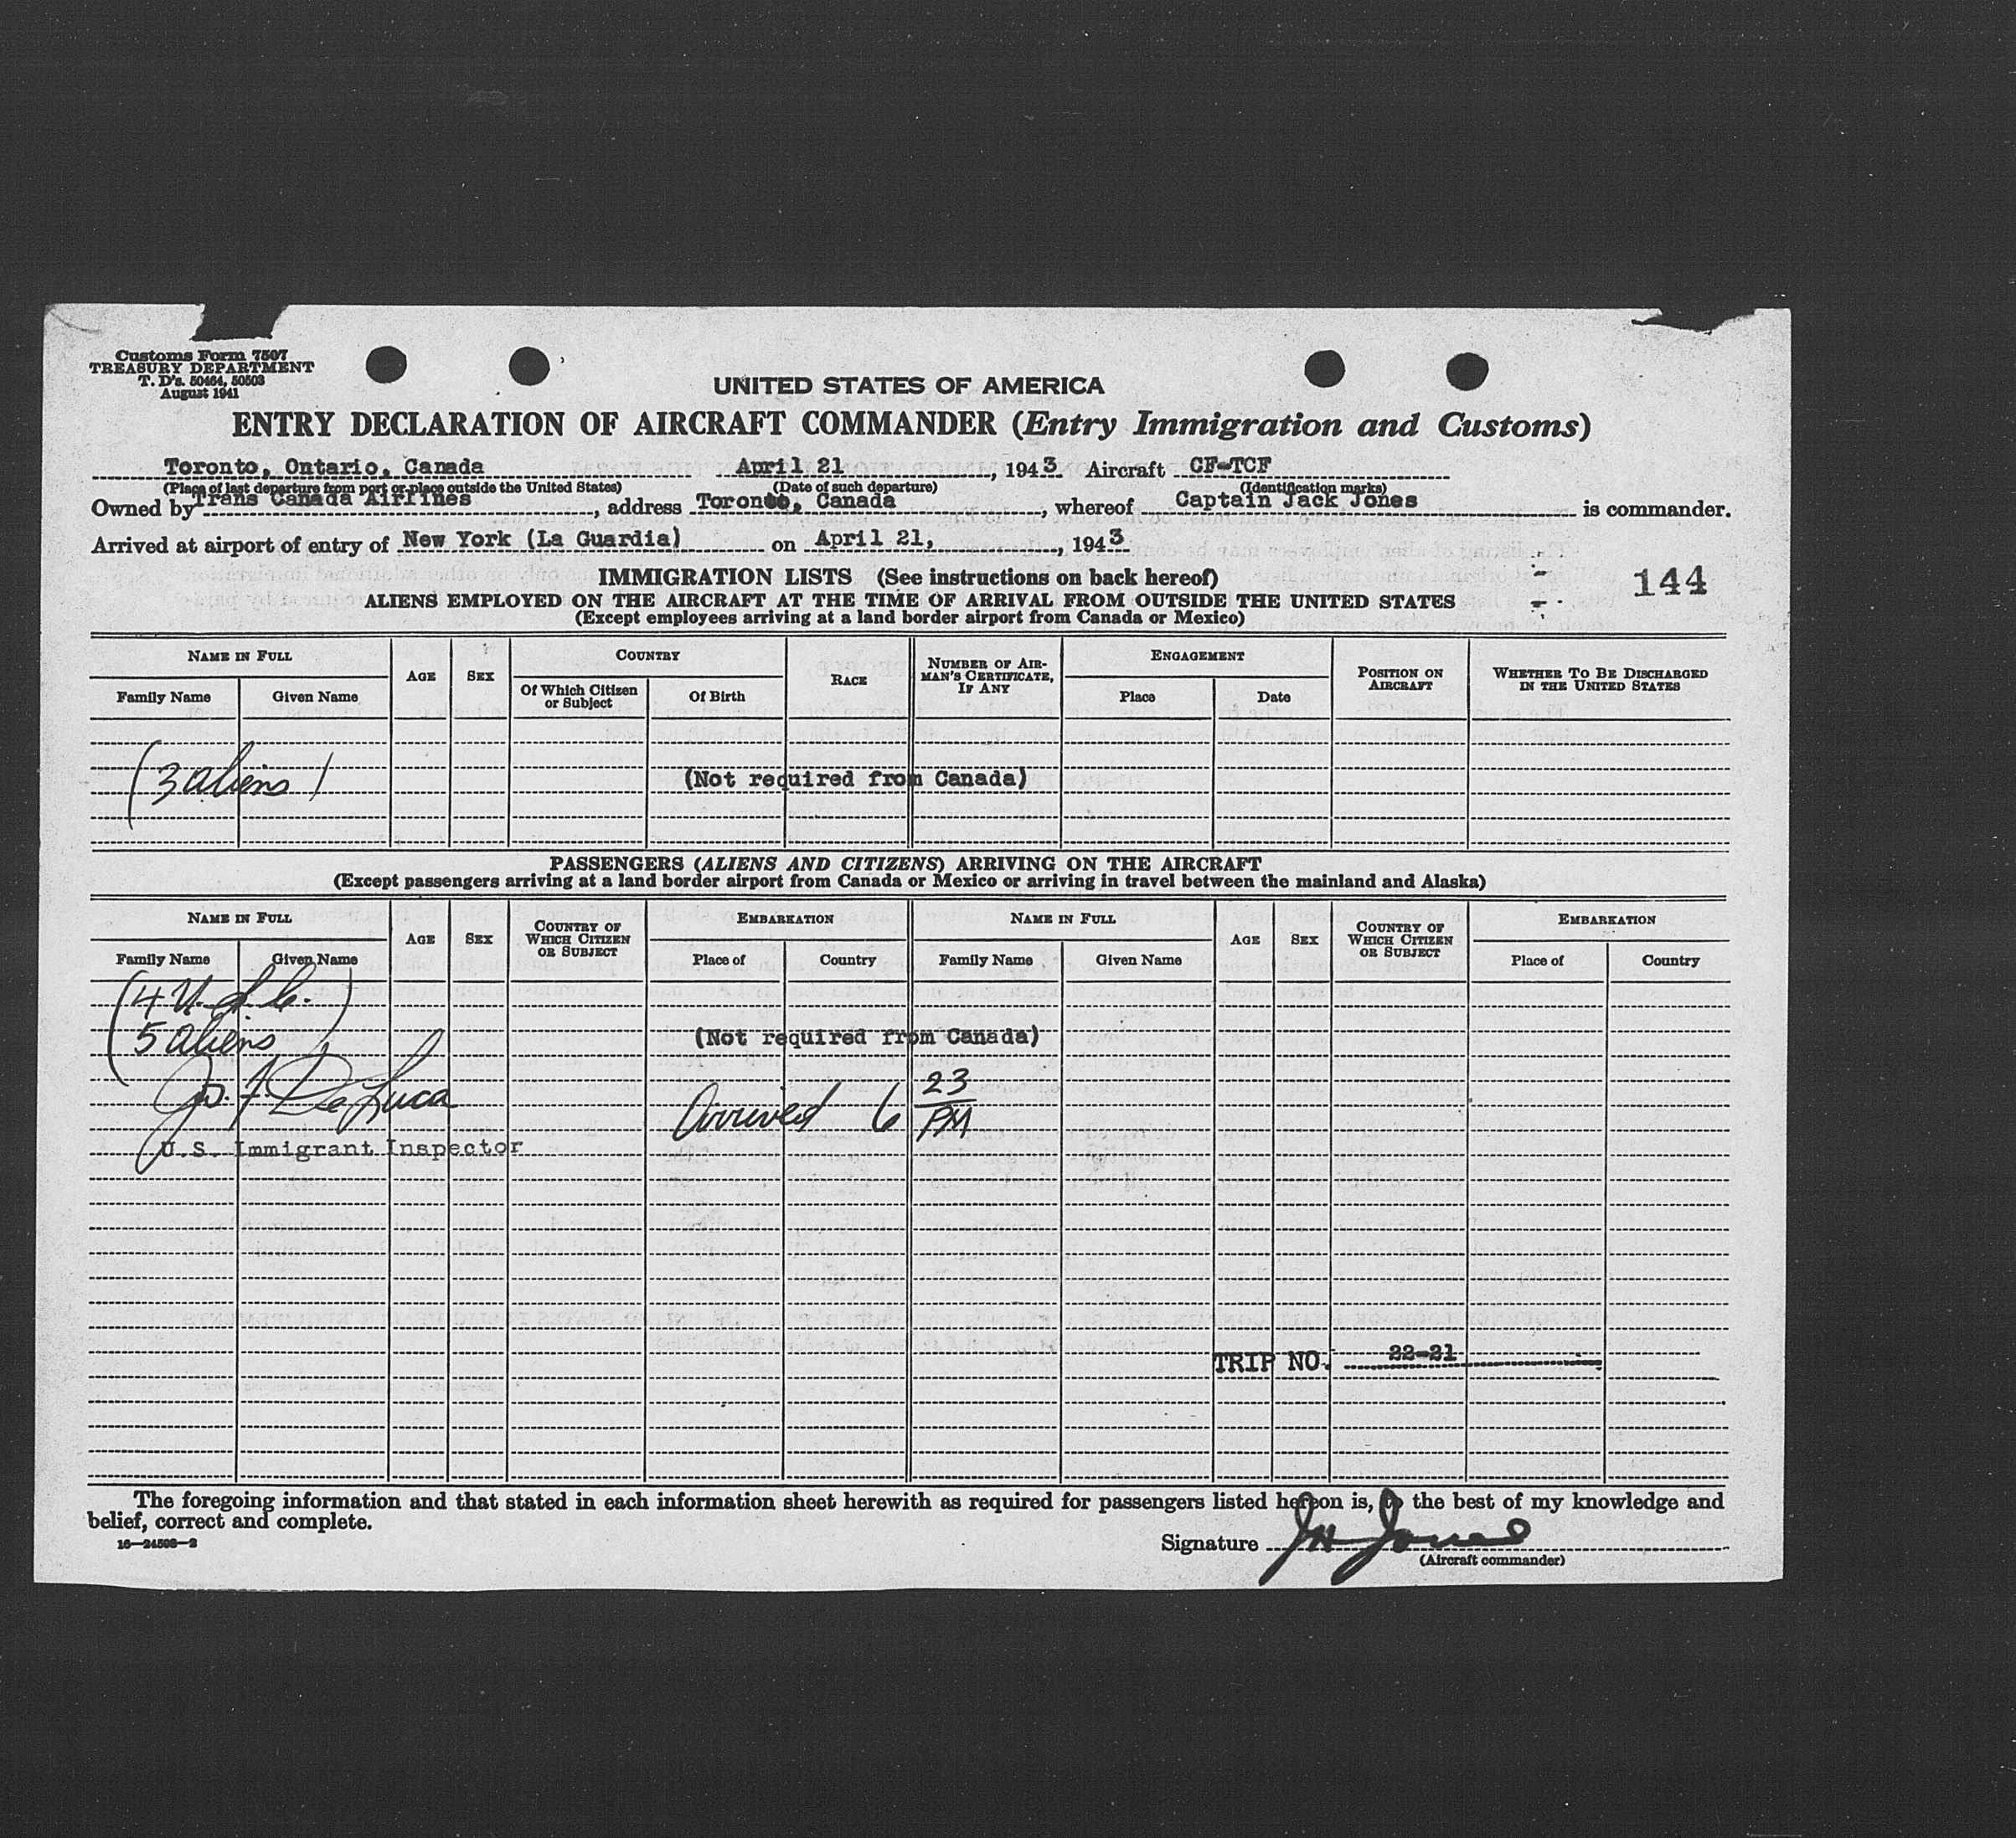 Customs Form 7507
TREASURY DEPARTMENT
T. D's. 50464, 50503
August 1941
UNITED STATES OF AMERICA
ENTRY DECLARATION OF AIRCRAFT COMMANDER (Entry Immigration and Customs)
Toronto, Ontario, Canada April 21, 1943 Aircraft CF-TCF
(Place of last departure from port or place outside the United States) (Date of such departure) (Identification marks)
Owned by Trans Canada Airlines, address Toronto, Canada, whereof Captain Jack Jones is commander.
Arrived at airport of entry of New York (La Guardia) on April 21, , 1943
IMMIGRATION LISTS (See instructions on back hereof)
144
ALIENS EMPLOYED ON THE AIRCRAFT AT THE TIME OF ARRIVAL FROM OUTSIDE THE UNITED STATES
(Except employees arriving at a land border airport from Canada or Mexico)
NAME IN FULL AGE SEX COUNTRY RACE NUMBER OF AIRMAN'S CERTIFICATE, IF ANY ENGAGEMENT POSITION ON AIRCRAFT WHETHER TO BE DISCHARGED IN THE UNITED STATES
Family Name Given Name Of Which Citizen or Subject Of Birth Place Date
(3 aliens) (Not required from Canada)
PASSENGERS (ALIENS AND CITIZENS) ARRIVING ON THE AIRCRAFT
(Except passengers arriving at a land border airport from Canada or Mexico or arriving in travel between the mainland and Alaska)
NAME IN FULL AGE SEX COUNTRY OF WHICH CITIZEN OR SUBJECT EMBARKATION NAME IN FULL AGE SEX COUNTRY OF WHICH CITIZEN OR SUBJECT EMBARKATION
Family Name Given Name Place of Country Family Name Given Name Place of Country
(4 U.S.C.
5 aliens) (Not required from Canada)
De Luca Arrived 6 23 PM
U.S. Immigrant Inspector
TRIP NO. 22-21
The foregoing information and that stated in each information sheet herewith as required for passengers listed hereon is, to the best of my knowledge and
belief, correct and complete.
16—24508-2
Signature JH Jones
(Aircraft commander)